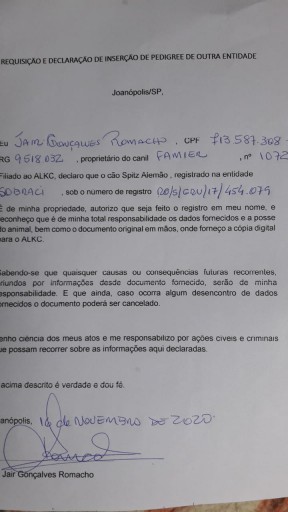 REQUISIÇÃO E DECLARAÇÃO DE INSERÇÃO DE PEDIGREE DE OUTRA ENTIDADE
Joanópolis/SP,
EU JAIR GONÇALVES ROMACHO, CPF 713 587 368
RG 9518032, proprietário do canil FAMIER, nº 1072
Filiado ao ALKC, declaro que o cão Spitz Alemão, registrado na entidade
SOBRACI, sob o número de registro
É de minha propriedade, autorizo que seja feito o registro em meu nome, e
reconheço que é de minha total responsabilidade os dados fornecidos e a posse
do animal, bem como o documento original em mãos, onde forneço a cópia digital
para o ALKC.
Sabendo-se que quaisquer causas ou consequências futuras recorrentes,
oriundos por informações desde documento fornecido, serão de minha
responsabilidade. E que ainda, caso ocorra algum desencontro de dados
fornecidos o documento poderá ser cancelado.
enho ciência dos meus atos e me responsabilizo por ações cíveis e criminais
ue possam recorrer sobre as informações aqui declaradas.
acima descrito é verdade e dou fé.
anópolis, 16 de NOVEMBRO DE 2020
Jair Gonçalves Romacho